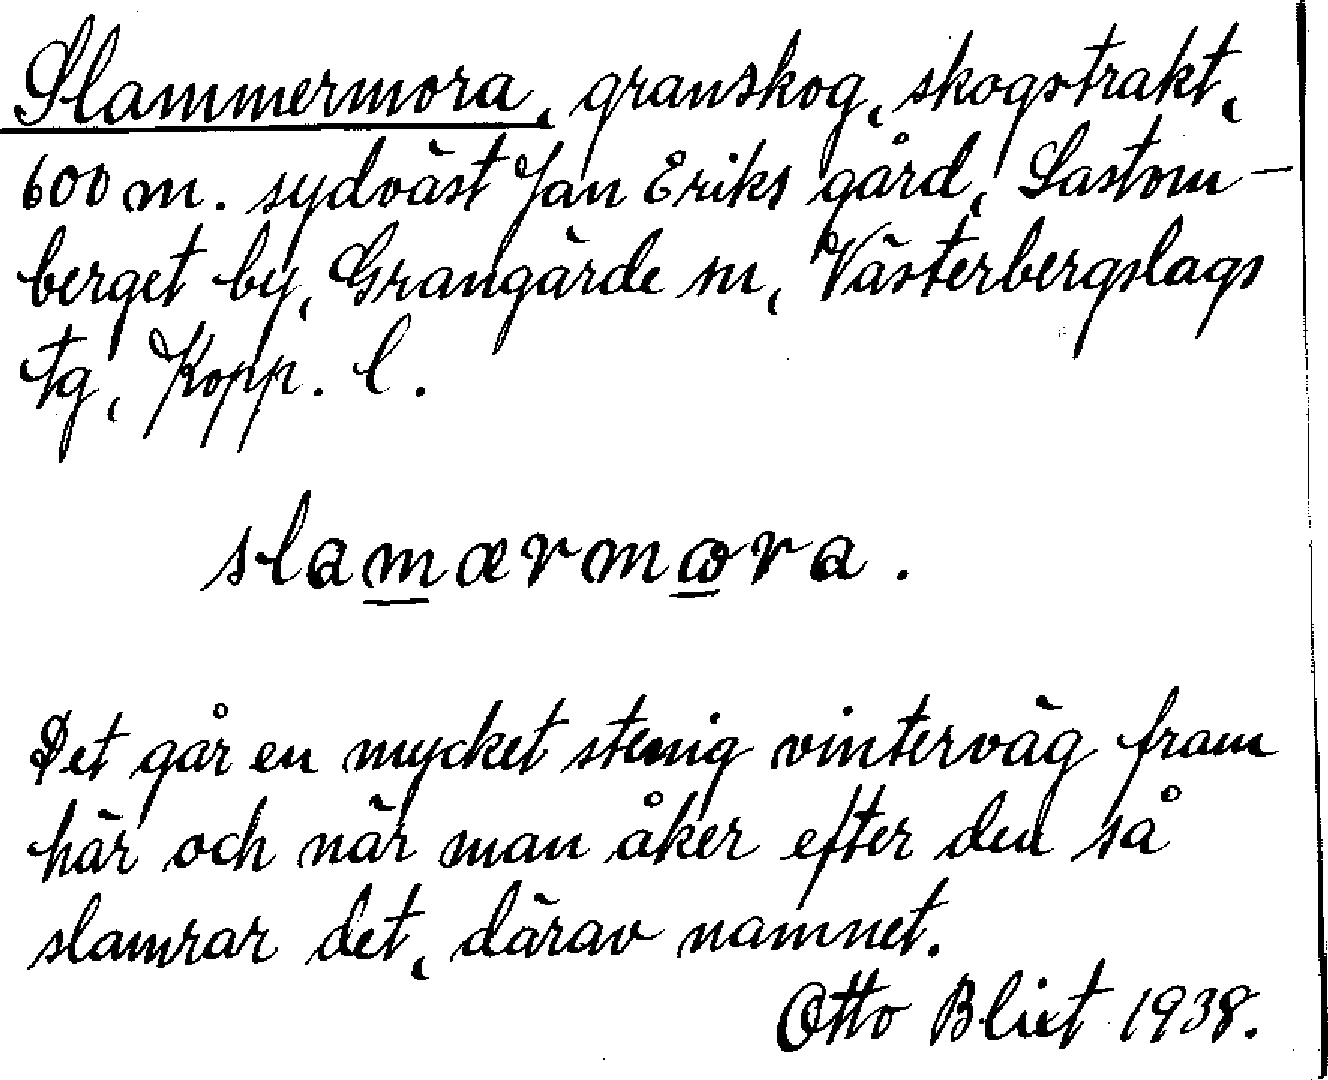 Slammermora, granskog, skogstrakt,
600 m. sydväst Jan Eriks gård, Sastom-
berget by, Grangärde sn, Västerbergslags
tg, Kopp. l.
slamærmωra.
Det går en mycket stenig vinterväg fram
här och när man åker efter den så
slamrar det, därav namnet.
Otto Blixt 1938.